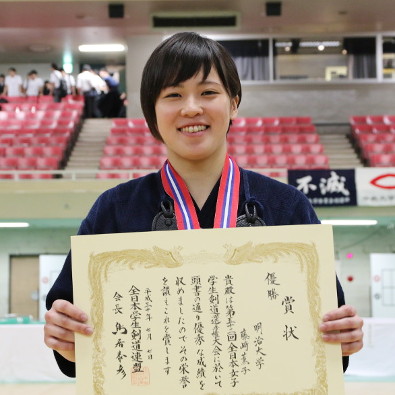 賞状
優勝
明治大学
藤﨑薫子
貴殿は第五十二回全日本女子
学生剣道選手権大会に於いて
頭書の通り優秀な成績を
収めましたのでその栄誉
を讃えこれを賞します
平成三十年七月七日
全日本学生剣道連盟
会長
不滅